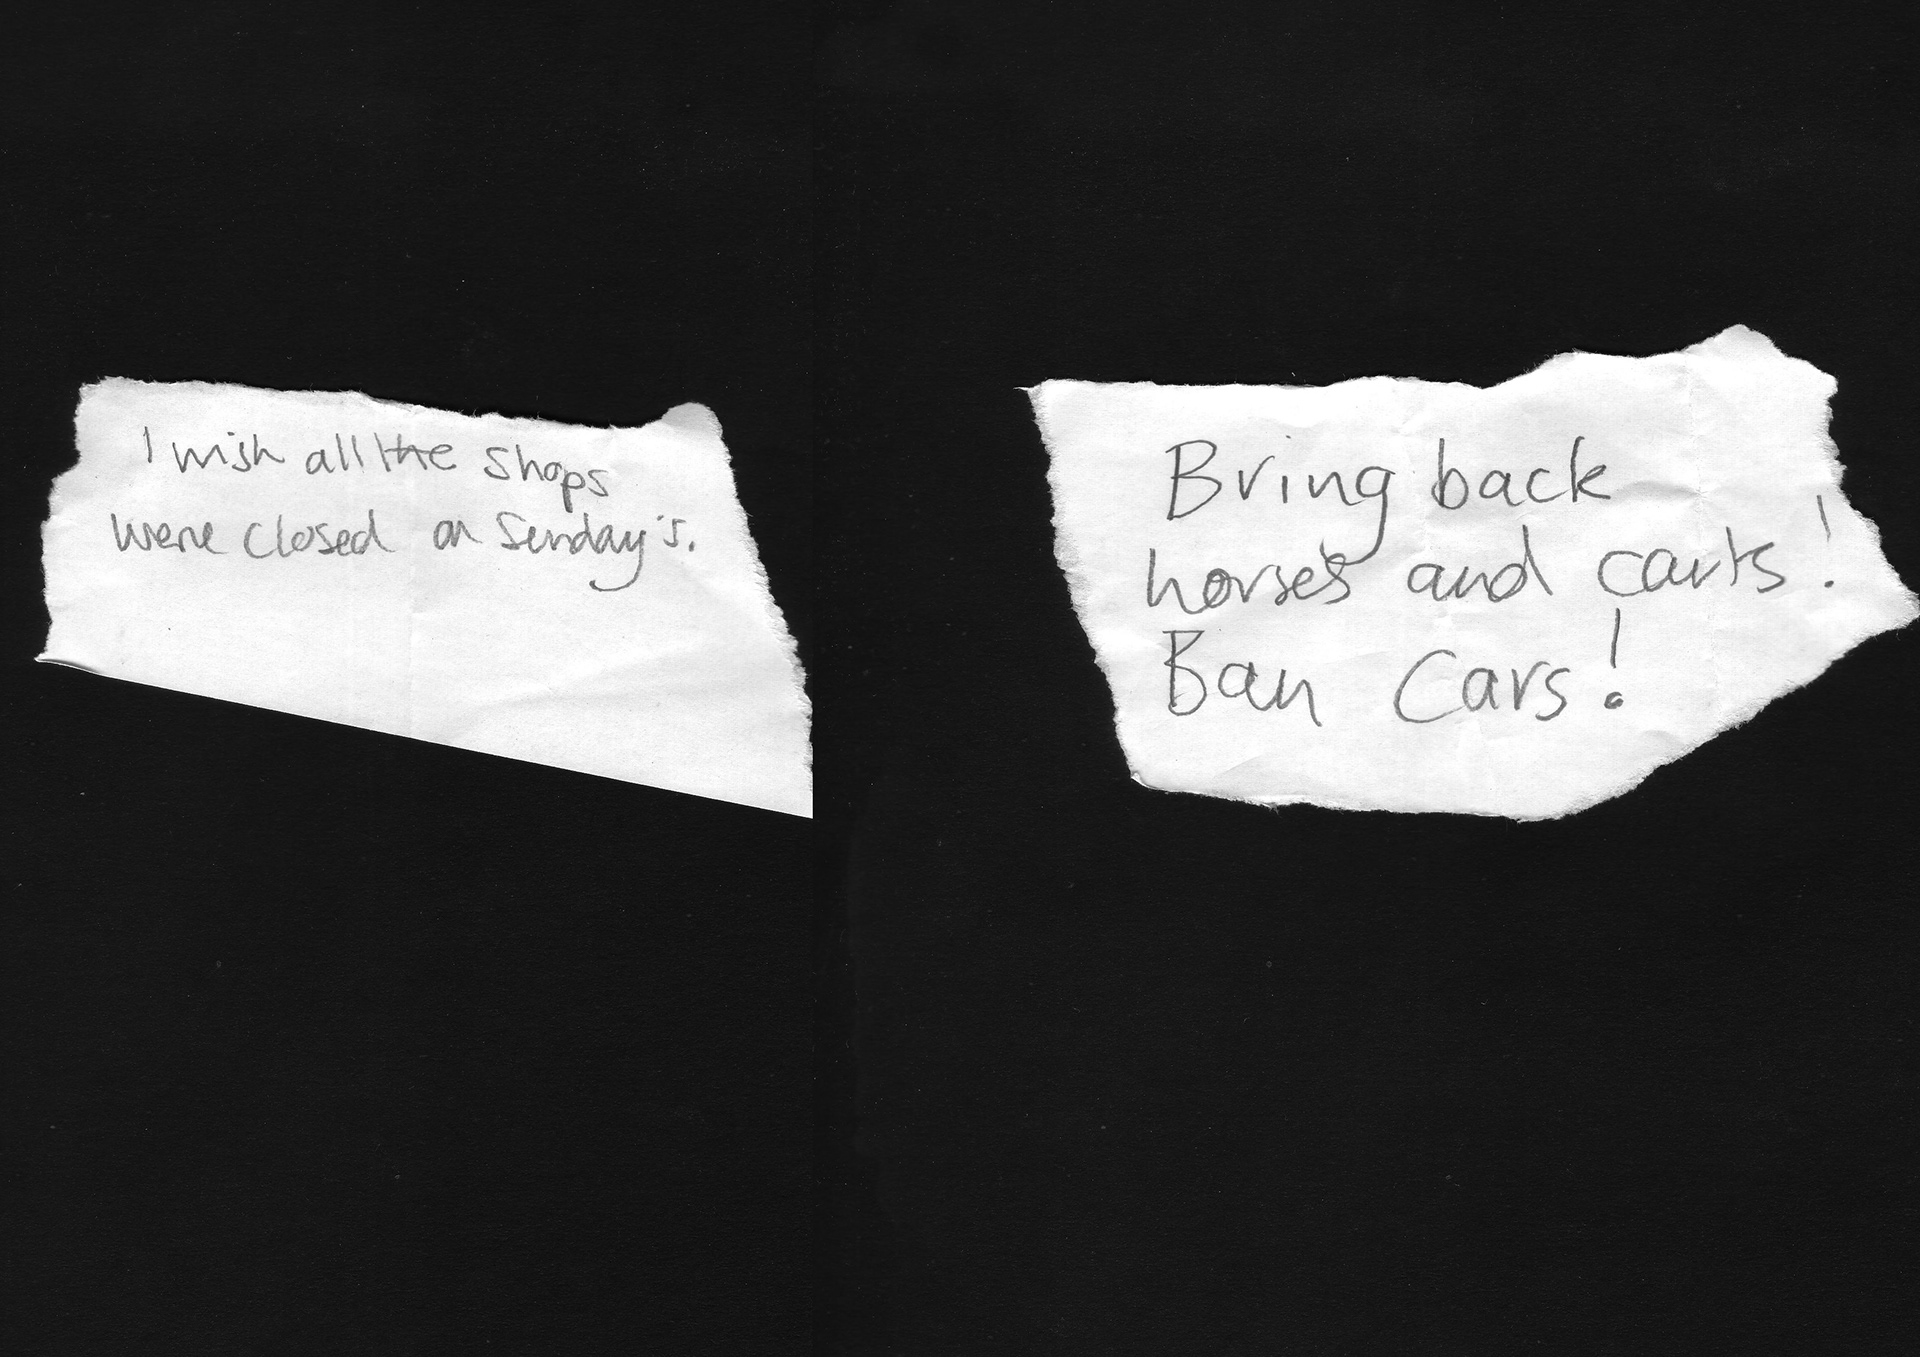 I wish all the shops
were closed on Sunday's.
Bring back
horses and carts!
Ban Cars!